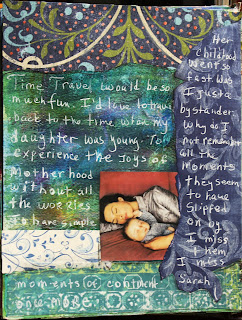 Time Travel would be so
much fun. I'd love to travel
back to the time when my
daughter was young. To
Experience the Joys of
Motherhood
without all
the worries
To have simple
moments of contment
once more.
Her
childhood
went so
fast was
I just a
bystander
why do I
not remember
all the
moments
they seem
to have
slipped
on by
I miss
them
I miss
Sarah